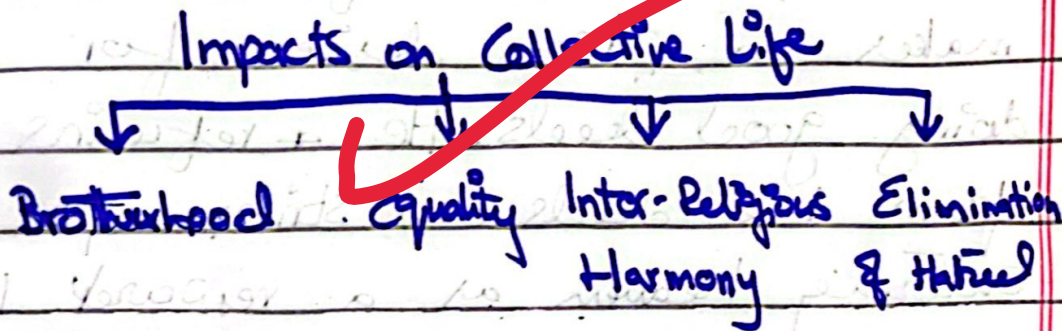 Impacts on Collective Life
Brotherhood Equality Inter-Religious Elimination
Harmony of Hatred